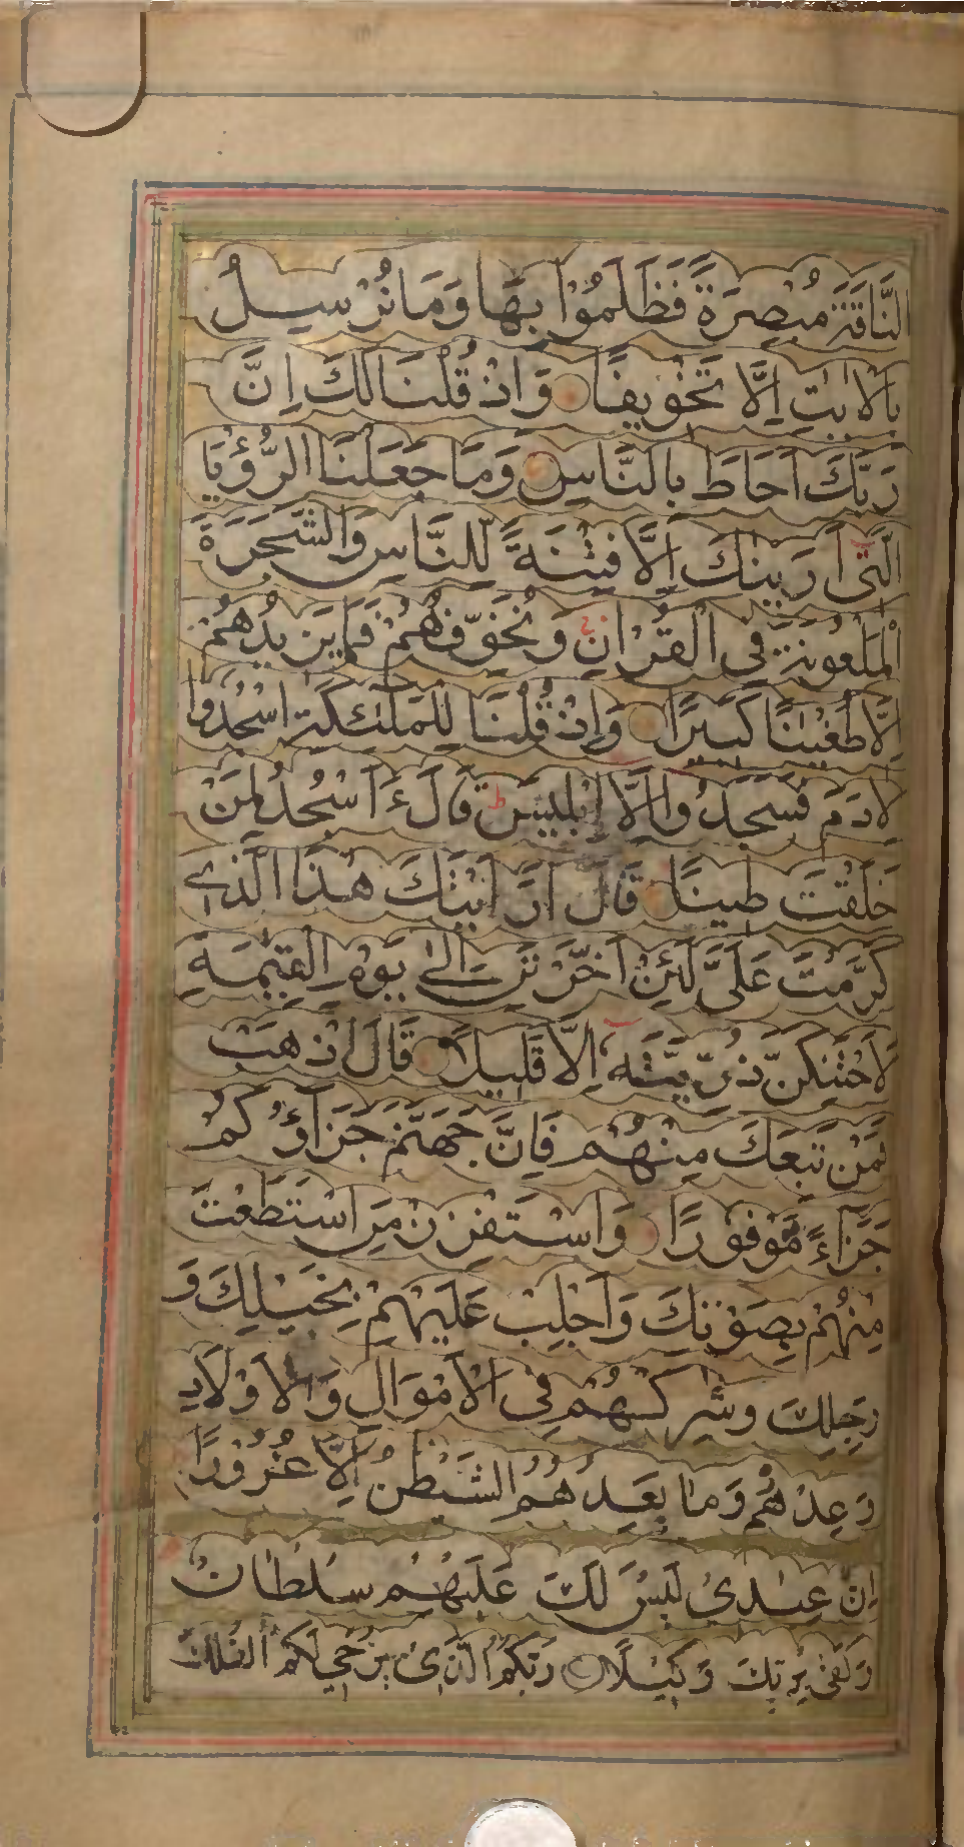 النَّاقَةَ مُبْصِرَةً فَظَلَمُوْا بِهَا وَمَا نُرْسِلُ
بِالْاٰيٰتِ اِلَّا تَخْوِيفًا وَاِذْ قُلْنَا لَكَ اِنَّ
رَبَّكَ اَحَاطَ بِالنَّاسِ وَمَا جَعَلْنَا الرُّؤْيَا
الَّتِى اَرَيْنٰكَ اِلَّا فِتْنَةً لِّلنَّاسِ وَالشَّجَرَةَ
الْمَلْعُوْنَةَ فِى الْقُرْاٰنِ وَنُخَوِّفُهُمْ فَمَا يَزِيدُهُمْ
اِلَّا طُغْيٰنًا كَبِيْرًا وَاِذْ قُلْنَا لِلْمَلٰئِكَةِ اسْجُدُوْا
لِاٰدَمَ فَسَجَدُوا اِلَّا اِبْلِيسَ ط قَالَ ءَاَسْجُدُ لِمَنْ
خَلَقْتَ طِينًا قَالَ اَرَاَيْتَكَ هٰذَا الَّذِى
كَرَّمْتَ عَلَىَّ لَئِنْ اَخَّرْتَنِ اِلٰى يَوْمِ الْقِيٰمَةِ
لَاَحْتَنِكَنَّ ذُرِّيَّتَهٗ اِلَّا قَلِيلًا قَالَ اذْهَبْ
فَمَنْ تَبِعَكَ مِنْهُمْ فَاِنَّ جَهَنَّمَ جَزَآؤُكُمْ
جَزَآءً مَّوْفُوْرًا وَاسْتَفْزِزْ مَنِ اسْتَطَعْتَ
مِنْهُمْ بِصَوْتِكَ وَاَجْلِبْ عَلَيْهِمْ بِخَيْلِكَ وَ
رَجِلِكَ وَشَارِكْهُمْ فِى الْاَمْوَالِ وَالْاَوْلَادِ
وَعِدْهُمْ وَمَا يَعِدُهُمُ الشَّيْطٰنُ اِلَّا غُرُوْرًا
اِنَّ عِبَادِىْ لَيْسَ لَكَ عَلَيْهِمْ سُلْطَانٌ
وَكَفٰى بِرَبِّكَ وَكِيْلًا رَبُّكُمُ الَّذِىْ يُزْجِىْ لَكُمُ الْفُلْكَ